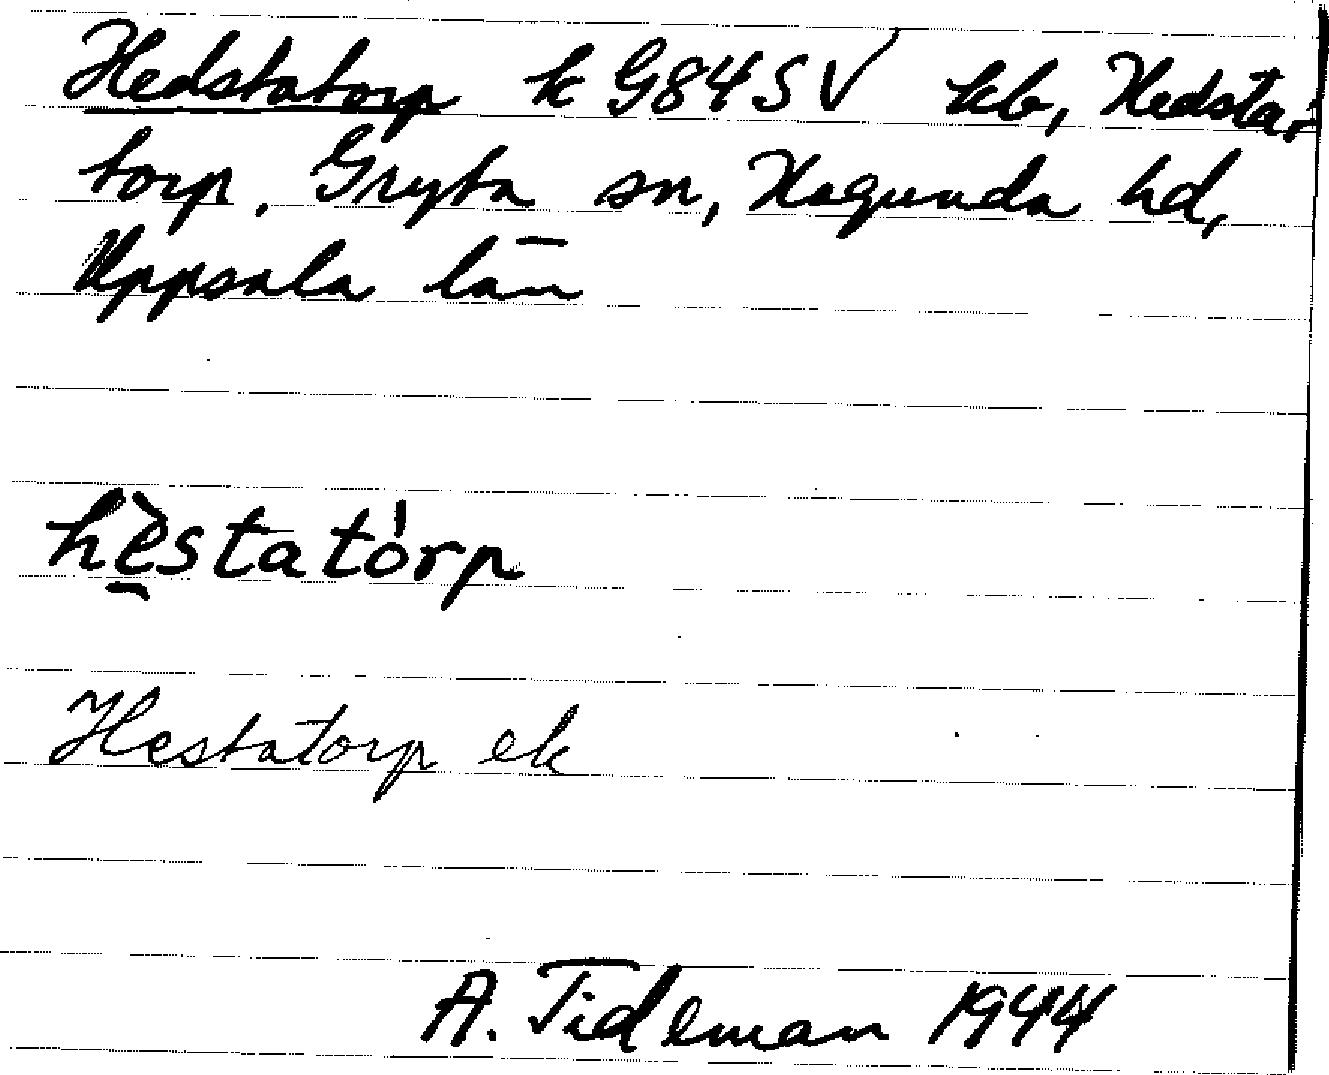 Hedstatorp k G84SV kb, Hedsta-
torp, Gryta sn, Hagunda hd,
Uppsala län
hèstatórp
Hestatorp ek
A. Tideman 1944